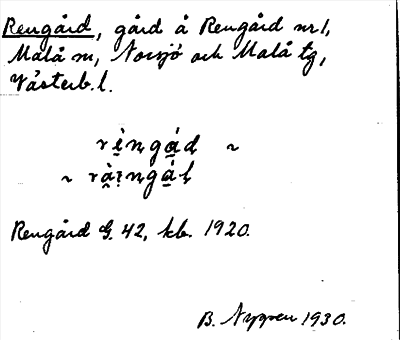 Rengård, gård å Rengård nr 1,
Malå sn, Norsjö och Malå tg,
Västerb. l.
Rengård G. 42, kb. 1920.
B. Nygren 1930.